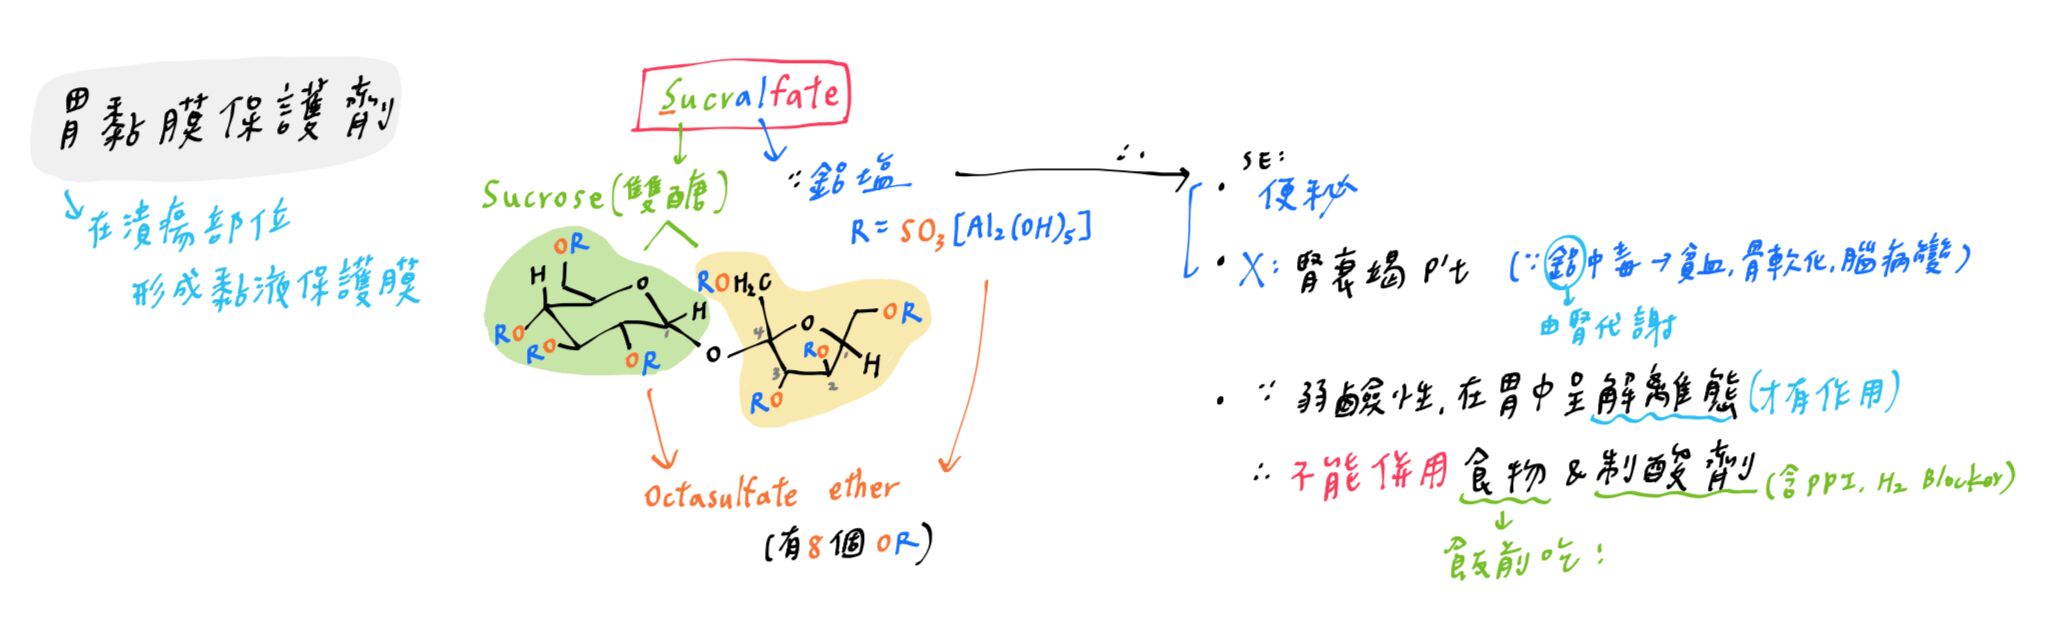 胃黏膜保護劑
在潰瘍部位
形成黏液保護膜
Sucralfate
Sucrose(雙醣)
∵鋁塩
R = SO3[Al2(OH)5]
OR
H
O
RO
RO
OR
H
1
O
ROH2C
4
O
OR
RO
1
H
3
2
RO
Octasulfate ether
(有8個OR)
∴
SE:
• 便秘
• X: 腎衰竭 P't (∵鋁中毒→貧血,骨軟化,腦病變)
由腎代謝
• ∵ 弱鹼性,在胃中呈解離態(才有作用)
∴ 不能併用 食物 & 制酸劑 (含PPI, H2 Blocker)
飯前吃!